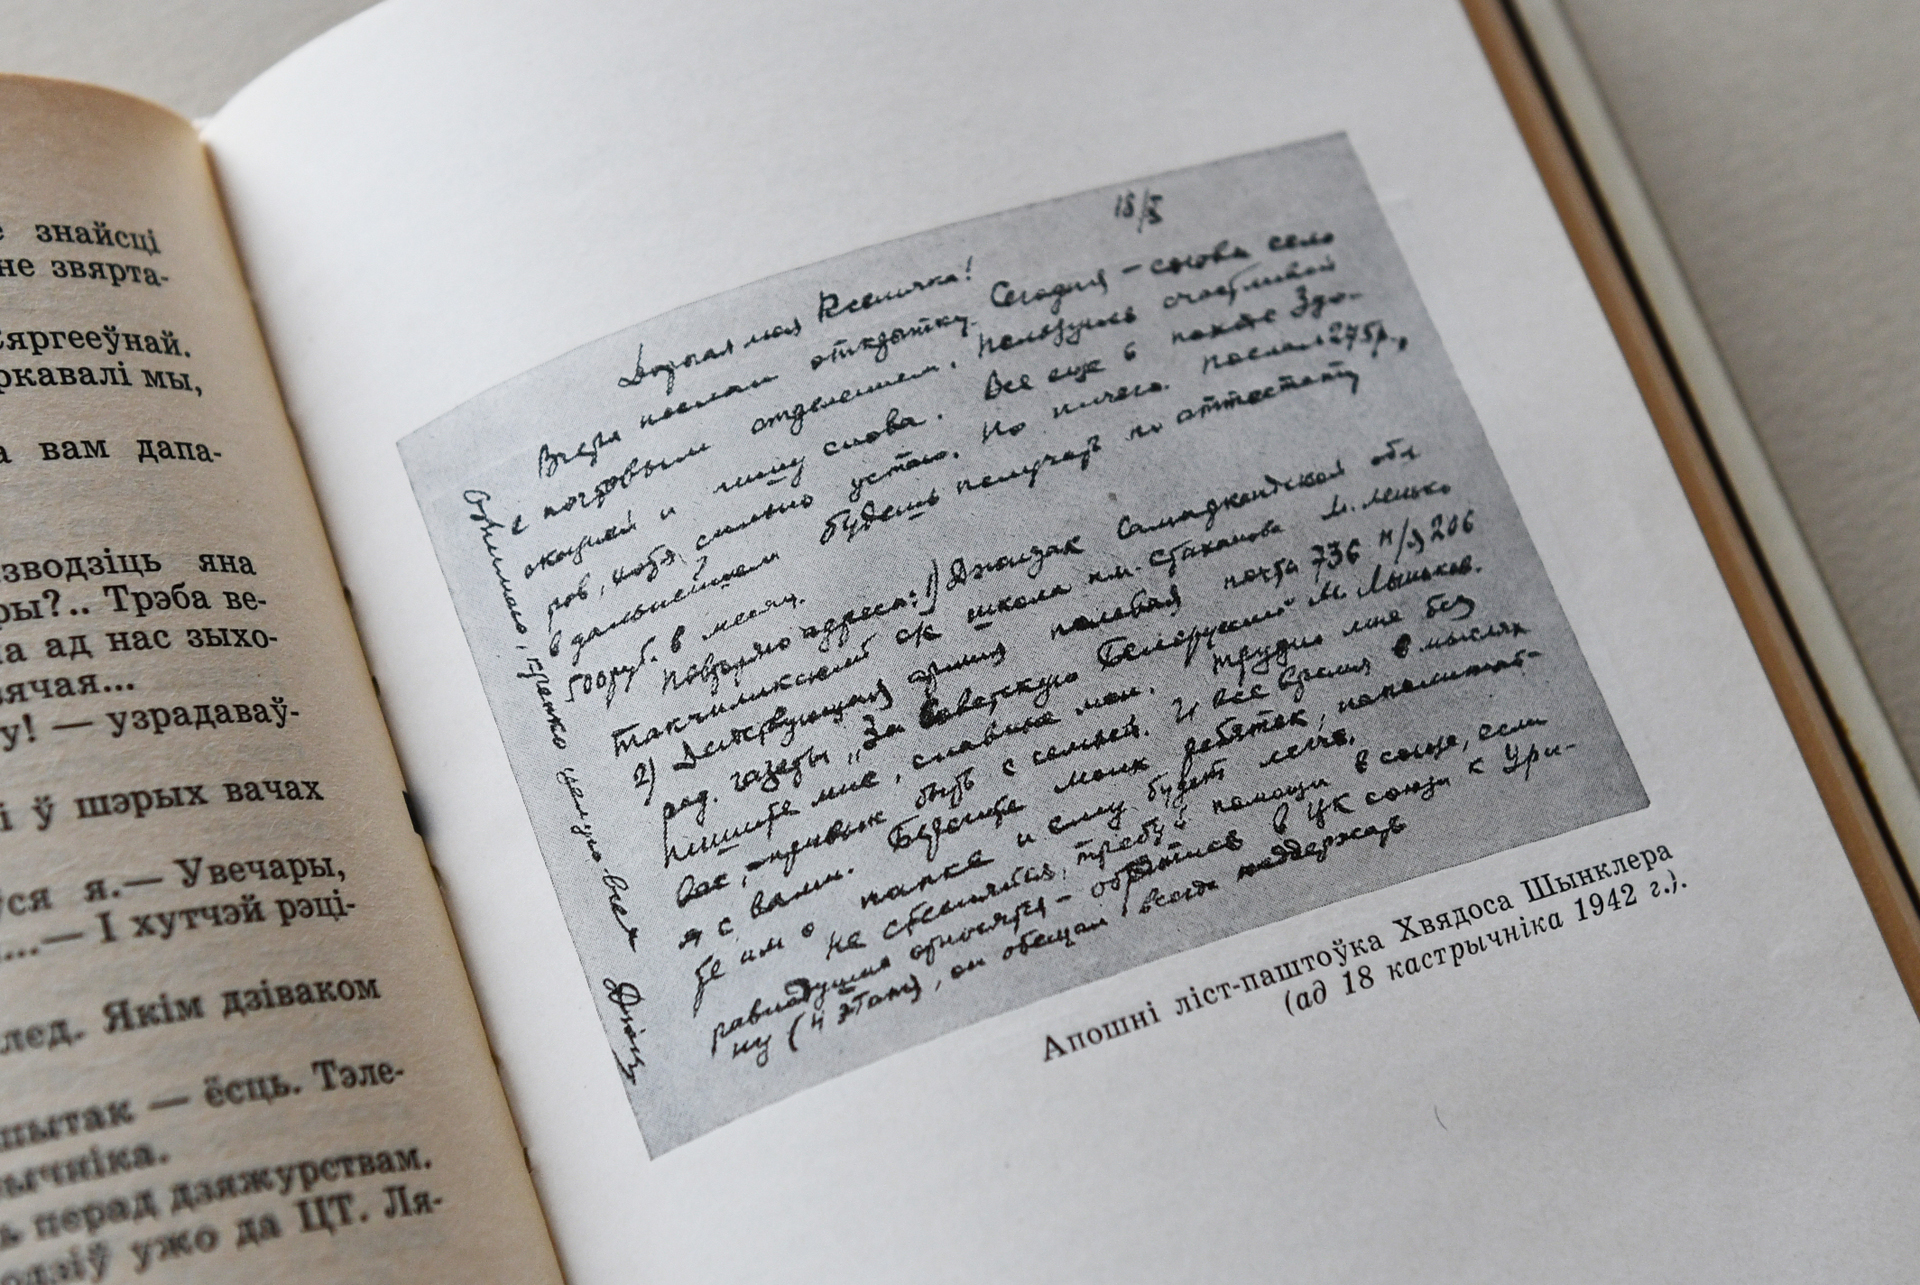 знайсці
не звярта-
Сяргееўнай.
ркавалі мы,
а вам дапа-
зводзіць яна
ры?.. Трэба ве-
ла ад нас зыхо-
вячая...
у! — узрадаваў-
і ў шэрых вачах
ўся я.— Увечары,
...— І хутчэй рэці-
лед. Якім дзіваком
пытак — ёсць. Тэле-
рычніка.
ь перад дзяжурствам.
одзіў ужо да ЦТ. Ля-
18/X
Дорогая моя Ксеничка!
Вчера послал открытку. Сегодня — снова село
с почтовым отделением. Пользуюсь счастливой
оказией и пишу снова. Все еще в походе. Здо-
ров, хотя сильно устаю. Но ничего. Послал 275 р.,
в дальнейшем будешь получать по аттестату
500 руб. в месяц.
Повторяю адреса: 1) Джизак Самаркандской обл
школа им. Стаханова М.
2) Действующая армия полевая почта 736 п/я 206
ред. газеты „За Советскую Белоруссию" М. Лыньков.
Пишите мне, славные мои. Трудно мне без
вас, привык быть с семьей. И все время в мыслях
я с вами. Берегите моих ребяток, напоминай-
те им о папке и ему будет легче.
Не стесняйся, требуй помощи в союзе, если
равнодушно относятся — обратись в ЦК союза к Ури-
ну (4 этаж), он обещал всегда поддержать
Обнимаю, крепко целую всех
Апошні ліст-паштоўка Хвядоса Шынклера
(ад 18 кастрычніка 1942 г.).